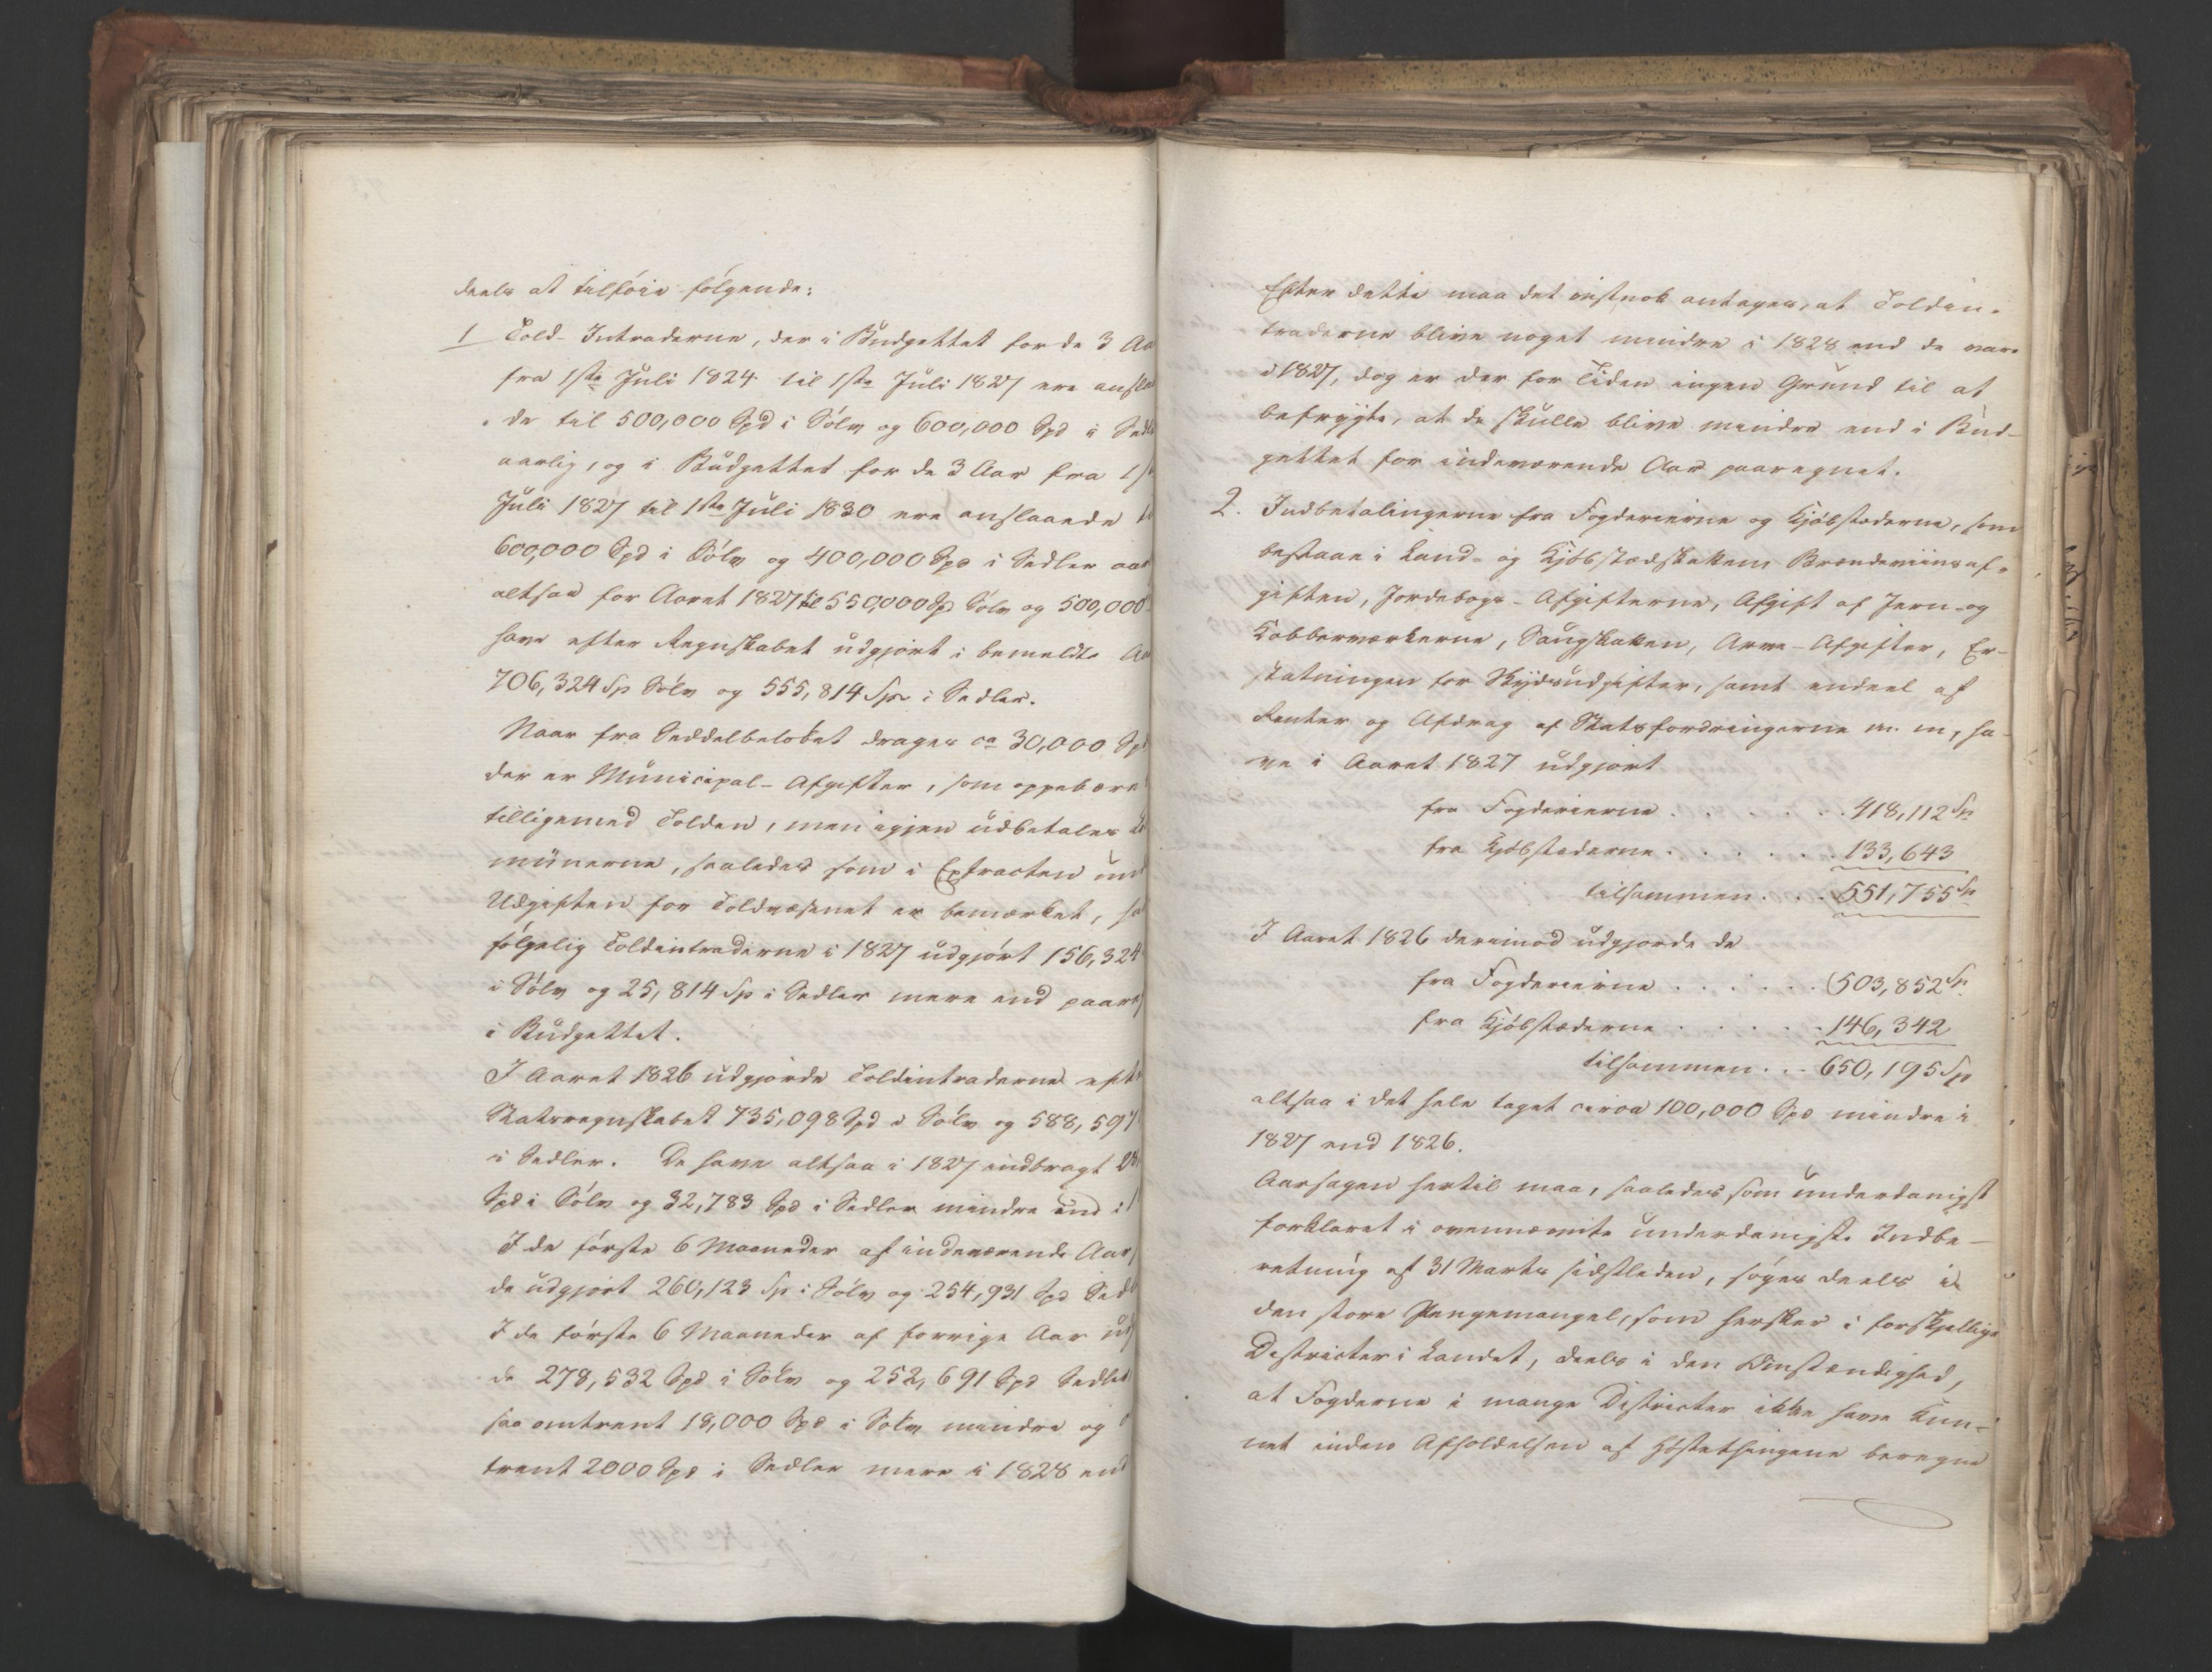 deels at tilføie følgende:
1 Told-Intraderne, der i Budgettet for de 3 Aa
fra 1ste Juli 1824 til 1ste Juli 1827 ere ansla
de til 500,000 Spd i Sølv og 600,000 Spd i Sedl
aarlig, og i Budgettet for de 3 Aar fra 1st
Juli 1827 til 1ste Juli 1830 ere anslaaede t
600,000 Spd i Sølv og 400,000 Spd i Sedler aar
altsaa for Aaret 1827 til 550,000 Sp Sølv og 500,000
have efter Regnskabet udgjort i bemeldte Aa
706,324 Sp Sølv og 555,814 Sp i Sedler.
Naar fra Seddelbeløbet drages ca 30,000 Sp
der er Municipal-Afgifter, som oppebære
tilligemed Tolden, men igjen udbetales Co
munerne, saaledes som i Extracten und
Udgiften for Toldvæsenet er bemærket, ha
følgelig Toldintraderne i 1827 udgjort 156,324
i Sølv og 25,814 Sp i Sedler mere end paare
i Budgettet.
I Aaret 1826 udgjorde Toldintraderne efte
Statsregnskabet 735,098 Spd i Sølv og 588,597
i Sedler. De have altsaa i 1827 indbragt 28
Spd i Sølv og 32,783 Spd i Sedler mindre end i 1
I de første 6 Maaneder af indeværende Aar
de udgjort 260,123 Sp i Sølv og 254,931 Spd Sedl
I de første 6 Maaneder af forrige Aar ud
de 278,532 Spd i Sølv og 252,691 Spd Sedler
saa omtrent 18,000 Spd i Sølv mindre og o
trent 2000 Spd i Sedler mere i 1828 end
Efter dette maa det vistnok antages, at Toldin-
traderne blive noget mindre i 1828 end de vare
i 1827, dog er der for Tiden ingen Grund til at
befrygte, at de skulle blive mindre end i Bud-
gettet for indeværende Aar paaregnet.
2. Indbetalingerne fra Fogderierne og Kjøbstæderne, som
bestaae i Land- og Kjøbstædskatten Brændeviinsaf-
giften, Jordebogs-Afgifterne, Afgift af Jern- og
Kobberværkerne, Saugskatten, Arve-Afgifter, Er-
statningen for Skydsudgifter, samt endeel af
Renter og Afdrag af Statsfordringerne m. m, ha-
ve i Aaret 1827 udgjort
fra Fogderierne . . . . . . 418,112 Sp
fra Kjøbstæderne . . . . . . 133,643
tilsammen . . . 551,755 Sp
I Aaret 1826 derimod udgjorde de
fra Fogderierne . . . . . . 503,852 Sp
fra Kjøbstæderne . . . . . 146,342
tilsammen . . . 650,195 Sp
altsaa i det hele taget circa 100,000 Spd mindre i
1827 end 1826.
Aarsagen hertil maa, saaledes som underdanigst
forklaret i ovennævnte underdanigste Indbe-
retning af 31 Marts sidstleden, søges deels i
den store Pengemangel, som hersker i forskjellige
Districter i Landet, deels i den Omstændighed,
at Fogderne i mange Districter ikke have kun-
net inden Afholdelsen af Høstethingene beregne